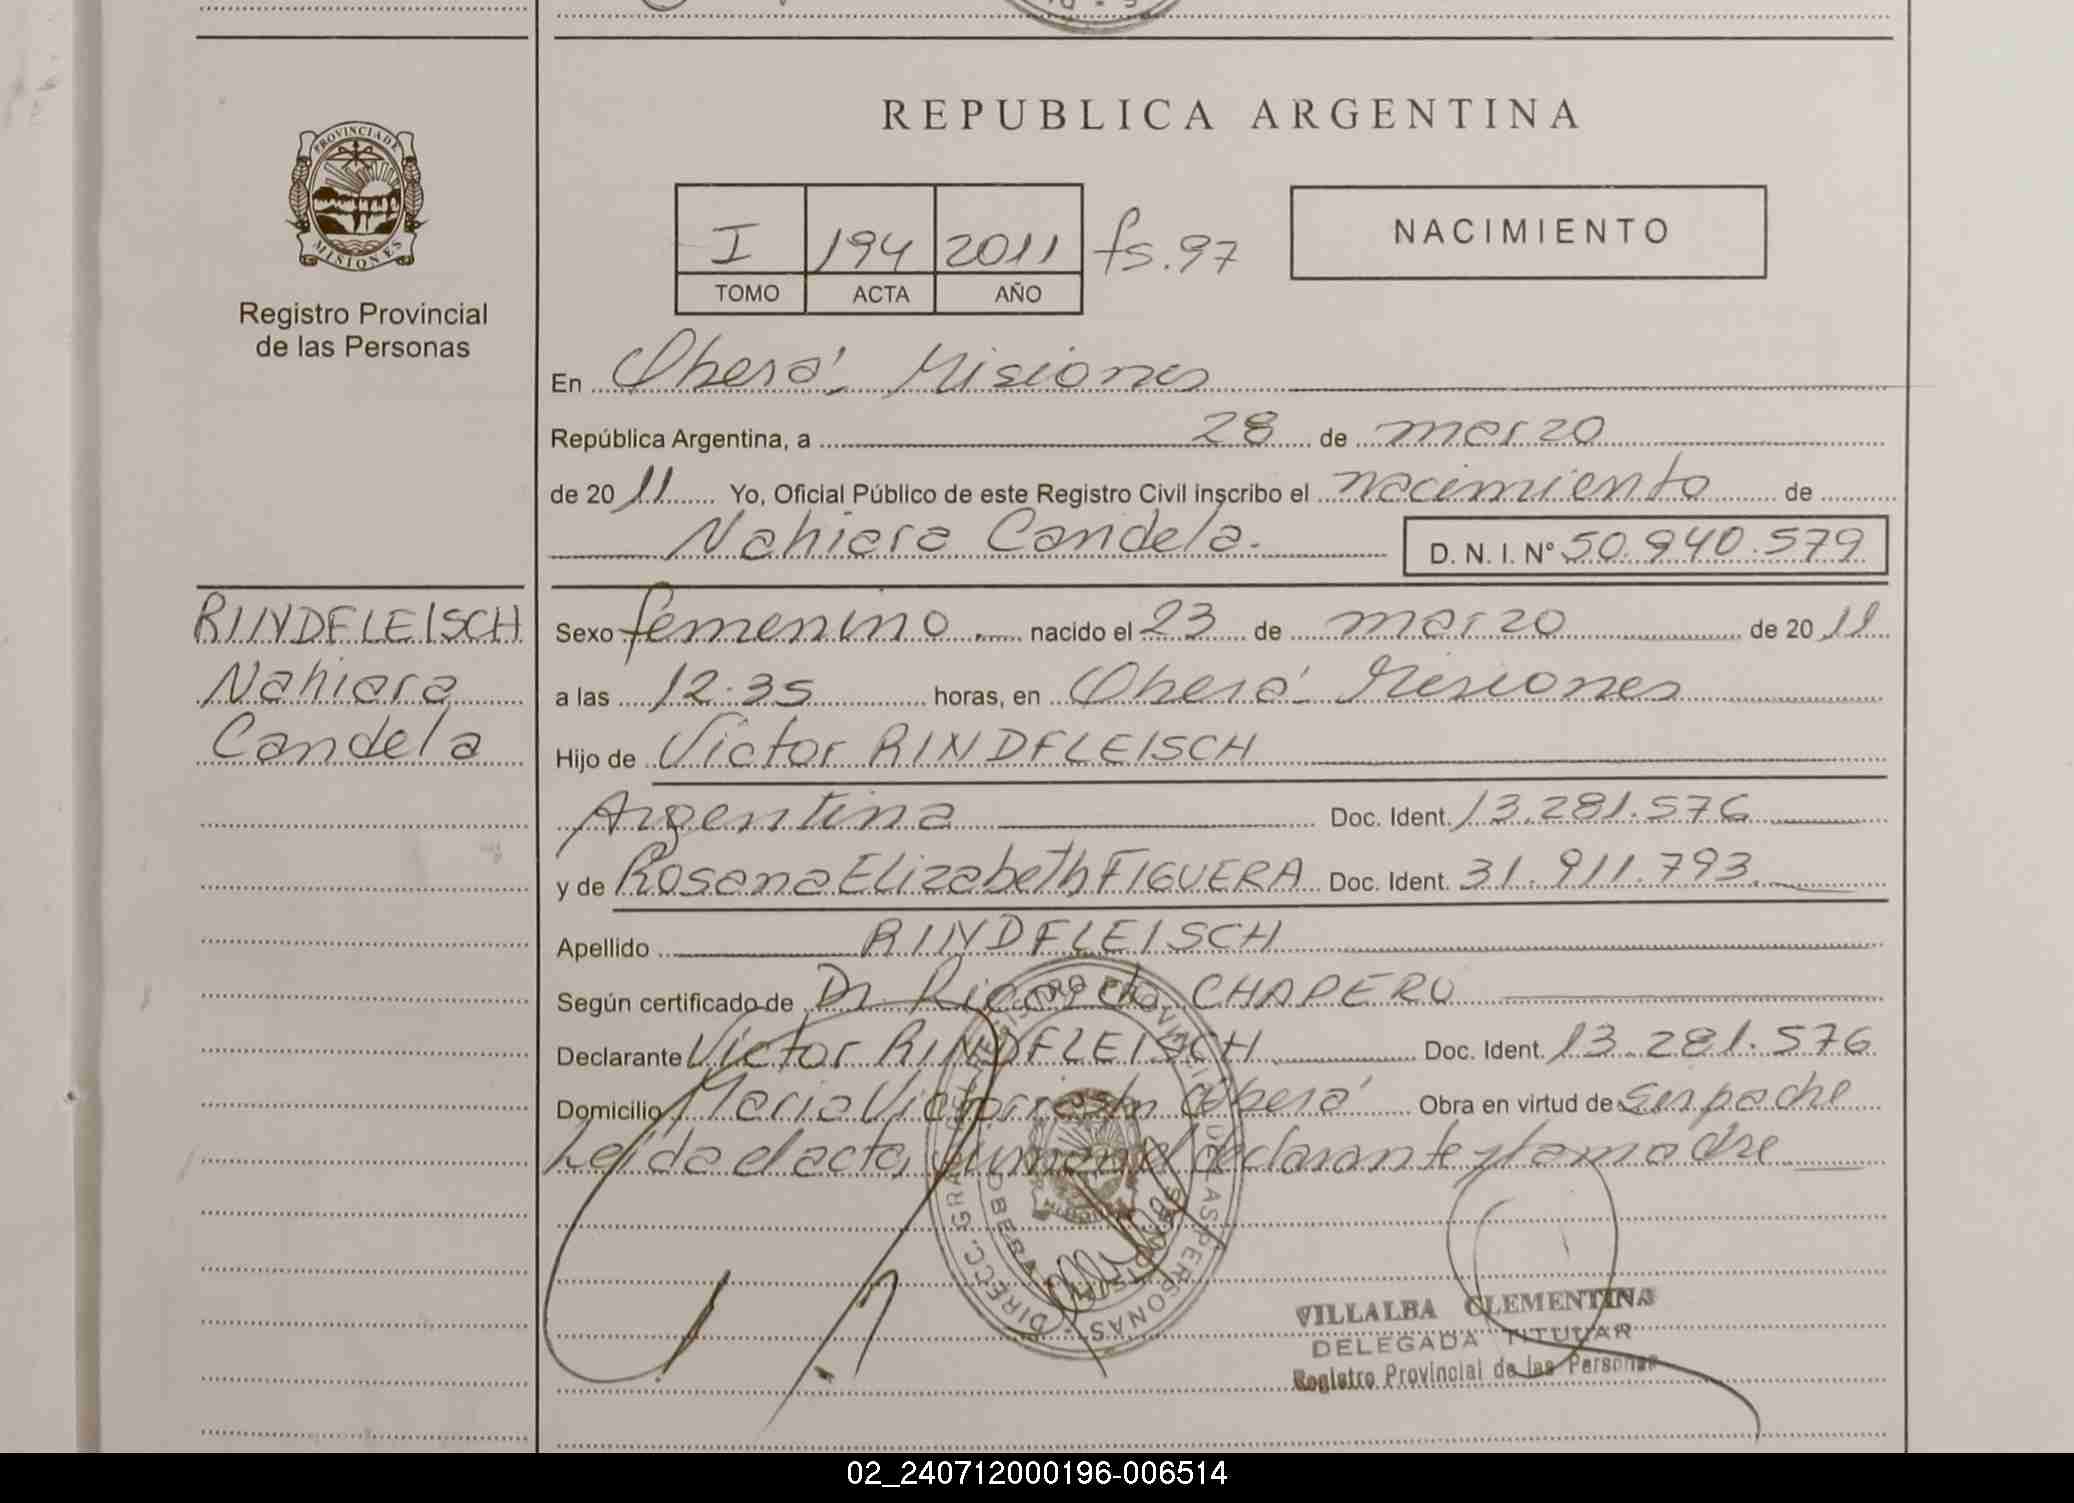 REPUBLICA ARGENTINA
PROVINCIA DE
MISIONES
Registro Provincial
de las Personas
I 194 2011 fs. 97
TOMO ACTA AÑO
NACIMIENTO
En Oberá Misiones
República Argentina, a 28 de marzo
de 2011 Yo, Oficial Público de este Registro Civil inscribo el nacimiento de
Nahiara Candela. D. N. I. Nº 50.940.579
RINDFLEISCH
Nahiara
Candela
Sexo femenino nacido el 23 de marzo de 2011
a las 12.35 horas, en Oberá Misiones
Hijo de Victor RINDFLEISCH
Argentina Doc. Ident. 13.281.576
y de Rosana Elizabeth FIGUERA Doc. Ident. 31.911.793
Apellido RINDFLEISCH
Según certificado de Dr. Ricardo CHAPERO
Declarante Victor RINDFLEISCH Doc. Ident. 13.281.576
Domicilio Maria Oberá Obra en virtud de ser padre
Leída el acta, firman el declarante y la madre
DIRECC. GRAL. REGISTRO PROVINCIAL DE LAS PERSONAS
OBERA MISIONES
VILLALBA CLEMENTINA
DELEGADA TITULAR
Registro Provincial de las Personas
02_240712000196-006514